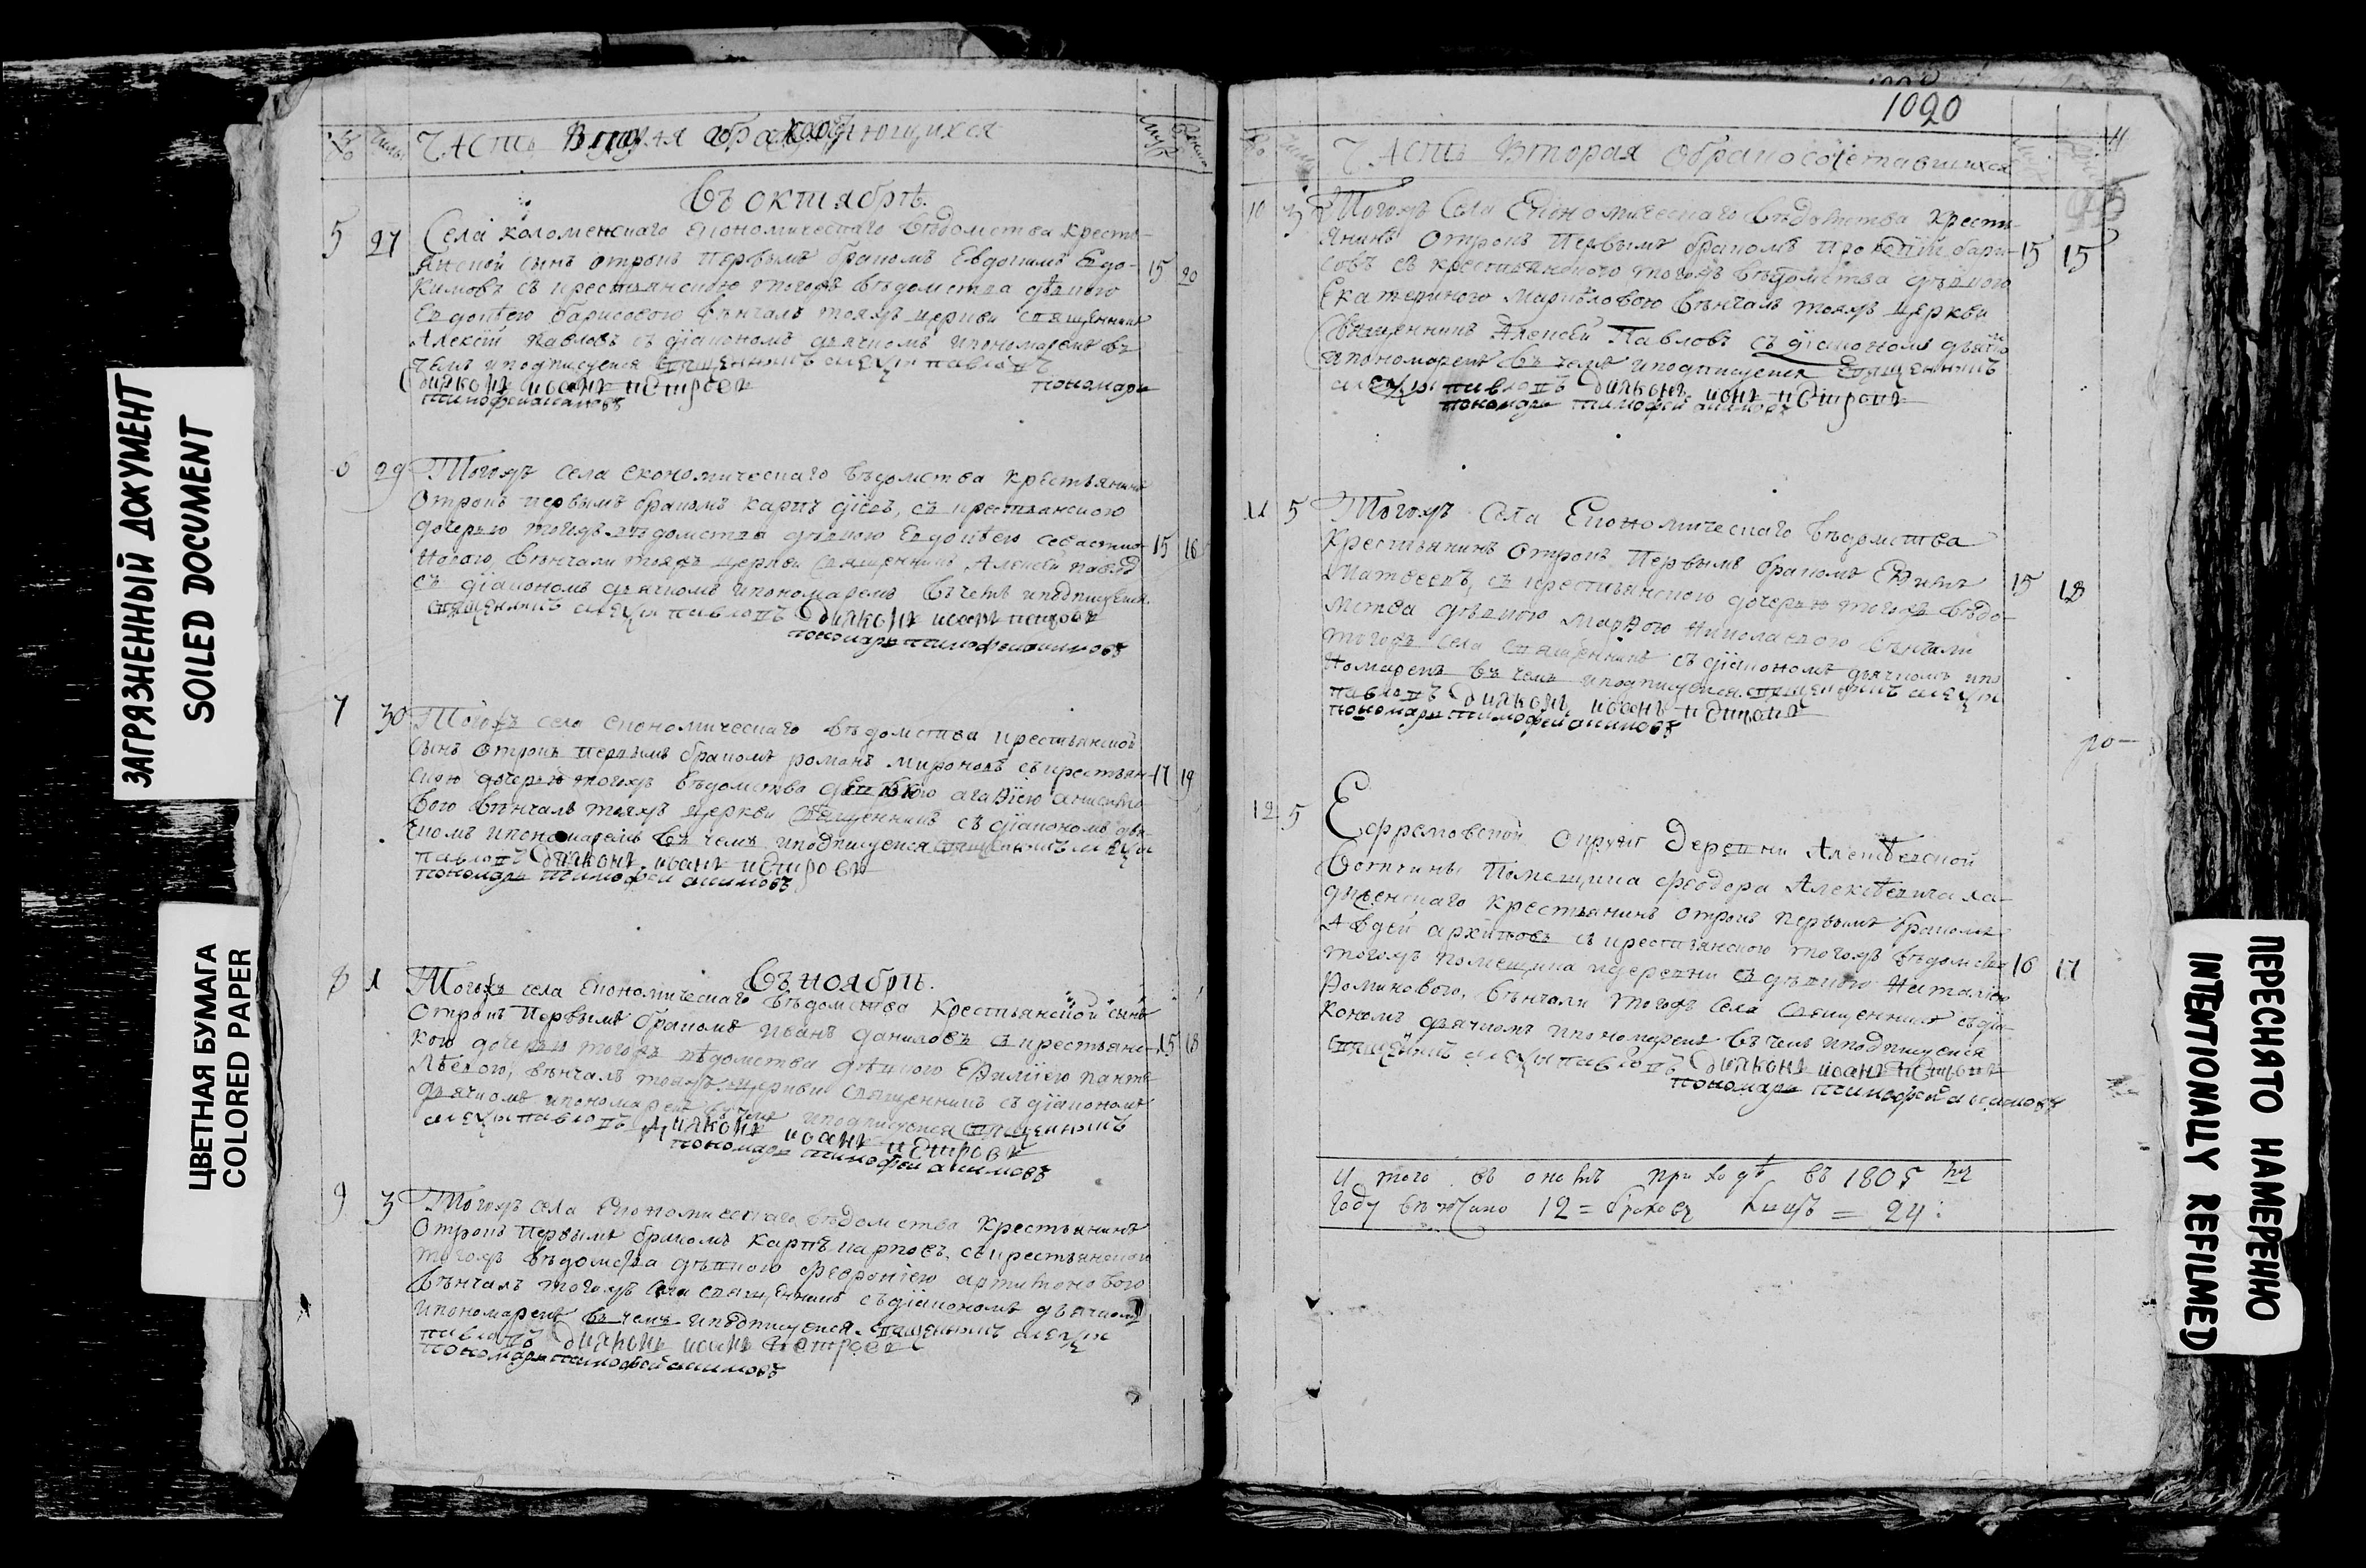 ЗАГРЯЗНЕННЫЙ ДОКУМЕНТ
SOILED DOCUMENT
ЦВЕТНАЯ БУМАГА
COLORED PAPER
Часть
Въ октябрѣ.
5 27 Села коломенскаго економическаго вѣдомства кресть-
янской сынъ отрокъ первымъ бракомъ Евдокимъ Евдо- 15 20
кимовъ съ крестьянскою тогожъ вѣдомства дѣвкою
Евдокѣею барисовою вѣнчалъ тояжъ церкви священникъ
Алексій Павловъ съ діакономъ дьячкомъ ипономаремъ въ
чемъ иподписуемся священникъ алеѯѣи павловъ
диаконъ иоанъ петровъ пономарь
тимофей акимовъ
6 29 Тогожъ села економическаго вѣдомства крестьянинъ
отрокъ первымъ бракомъ карпъ съ крестьянскою
дочерью тогожъ вѣдомства дѣвкою Евдокѣею севастия- 15 16
новою, вѣнчали тояжъ церкви священникъ Алексѣй павлов
съ діакономъ дьячкомъ ипономаремъ въчемъ иподписуемся
священникъ алеѯѣи павловъ диаконъ иоанъ петровъ
пономарь тимофей акимовъ
7 30 Тогожъ села економическаго вѣдомства крестьянской
сынъ отрокъ первымъ бракомъ романъ мироновъ съкрестьян-
скою дочерью тогожъ вѣдомства дѣвкою агаѳіею аниси 17 19
вою вѣнчалъ тояжъ церкви священникъ съ діакономъ дья-
чкомъ ипономаремъ въ чемъ иподписуемся священникъ алеѯѣи
павловъ диаконъ иоанъ петровъ
пономарь тимофей акимовъ
Въ ноябрѣ.
8 1 Тогожъ села економическаго вѣдомства крестьянской сынъ
отрокъ первымъ бракомъ иванъ даниловъ съ крестьянс-
кою дочерью тогожъ вѣдомства дѣвкою Еѳиміею панте- 15 18
лѣевою, вѣнчалъ тояжъ церкви священникъ съ діакономъ
дьячкомъ ипономаремъ въчемъ иподписуемся священникъ
алеѯѣи павловъ диаконъ иоанъ петровъ
пономарь тимофей акимовъ
9 3 Тогожъ села Економическаго вѣдомства крестьянинъ
отрокъ первымъ бракомъ карпъ карповъ, съкрестьянскою
тогожъ вѣдомства дѣвкою февроніею артимоновою
вѣнчалъ тогожъ села священникъ съ діакономъ дьячкомъ
ипономаремъ въ чемъ иподписуемся священникъ алеѯѣи
павловъ диаконъ иоанъ петровъ
пономарь тимофей акимовъ
1020
Часть вторая обракосочетавшихся
10 3 Тогожъ села Економическаго вѣдомства кресть-
янинъ отрокъ первымъ бракомъ прокофій бари- 15 15
совъ съ крестьянскою тогожъ вѣдомства дѣвкою
Екатериною вѣнчалъ тояжъ церкви
священникъ Алексѣй Павловъ съ діакономъ дьячко
ипономаремъ въ чемъ иподписуемся священникъ
алеѯѣи павловъ диаконъ иоанъ петровъ
пономарь тимофей акимовъ
11 5 Тогожъ села Економическаго вѣдомства
крестьянинъ отрокъ первымъ бракомъ Еѳимъ 15 18
Матвеевъ, съ крестьянскою дочерью тогожъ вѣдо-
мства дѣвкою марѳою николаевою вѣнчали
тогожъ села священникъ съ діакономъ дьячкомъ ипо
номаремъ въ чемъ иподписуемся священникъ алеѯѣи
павловъ диаконъ иоанъ петровъ
пономарь тимофей акимовъ
12 5 Ефремовской округи деревни Алексѣевской
вотчины помещика феодора Алексѣевича ха-
крестьянинъ отрокъ первымъ бракомъ
Авдей архиповъ съ крестьянскою тогожъ вѣдомства
тогожъ помещика идеревни съ дѣвкою Наталіею 16 17
Фоминовою, вѣнчали тогожъ села священникъ съдіа-
кономъ дьячкомъ ипономаремъ въ чемъ иподписуемся
священникъ алеѯѣи павловъ диаконъ иоанъ петровъ
пономарь тимофей акимовъ
Итого въ ономъ приходѣ въ 1805 мъ
году вѣнчано 12 = браковъ лицъ = 24:
ПЕРЕСНЯТО НАМЕРЕННО
INTENTIONALLY REFILMED